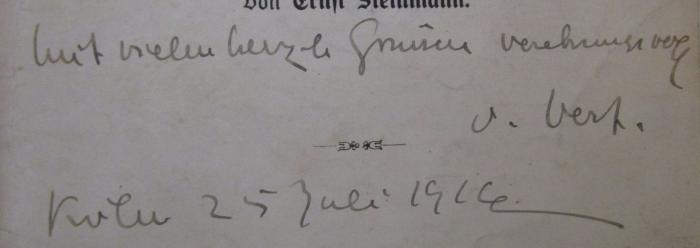 Von Ernst Steinmann.
Mit vielen herzl. Grüssen verehrungsvoll
v. Verf.
Köln 25 Juli 1916